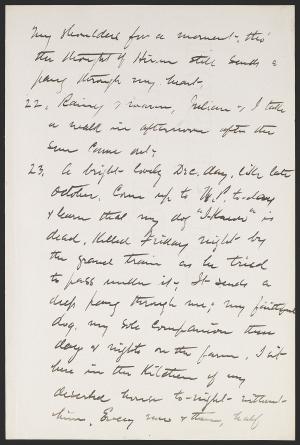 my shoulders for a moment, tho'
the thought of Hiram still sends a
pang through my heart.
22, Rainy & warm, Julian & I take
a walk in afternoon after the
sun came out.
23, A bright lovely Dec, day, like late
October. Come up to W.P. to-day
& learn that my dog "I-Know" is
dead, killed Friday night by
the gravel train as he tried
to pass under it. It sends a
deep pang through me; my faithful
dog, my sole companion these
days & nights on the farm. I sit
here in the Kitchen of my
deserted house to-night without
him. Every now & then, half